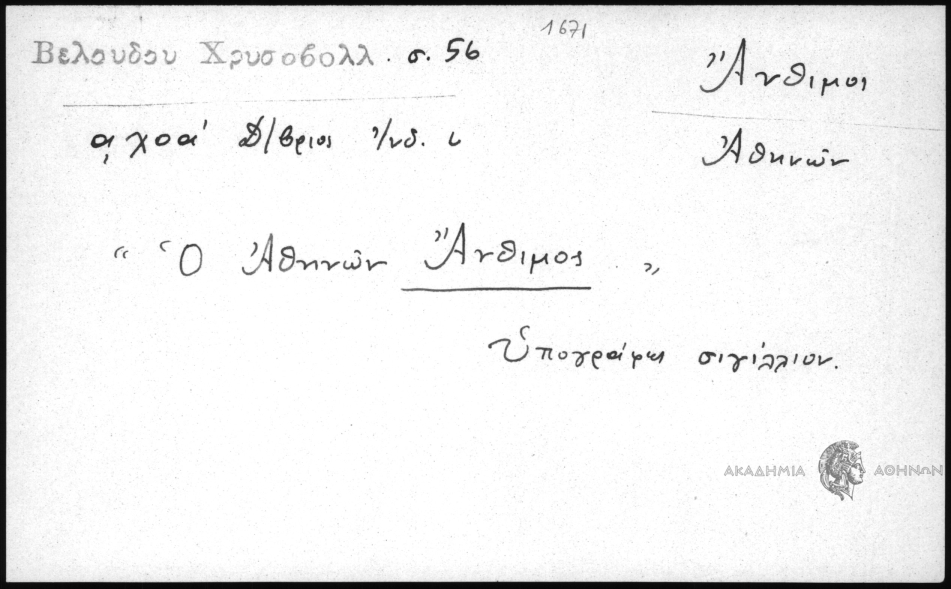 1671
Βελουδου Χρυσοβολλ. σ. 56
Ἄνθιμος
Ἀθηνῶν
͵αχοα' Δ/βριος ἰ/νδ. ι
“ Ὁ Ἀθηνῶν Ἄνθιμος „
Ὑπογράφει σιγίλλιον.
ΑΚΑΔΗΜΙΑ ΑΘΗΝΩΝ